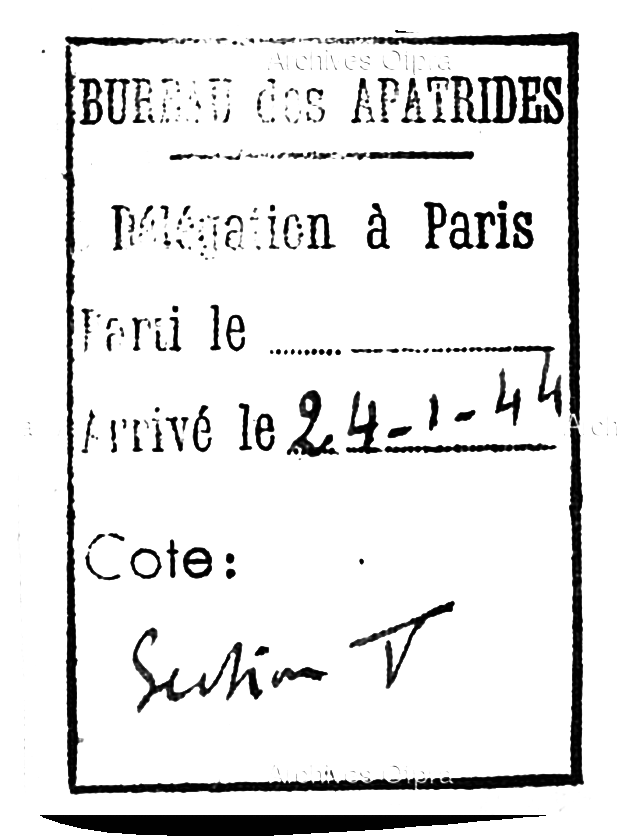 Archives Ofpra
BUREAU des APATRIDES
Délégation à Paris
Parti le ..........
Arrivé le 24-1-44
Cote:
Section V
Archives Ofpra